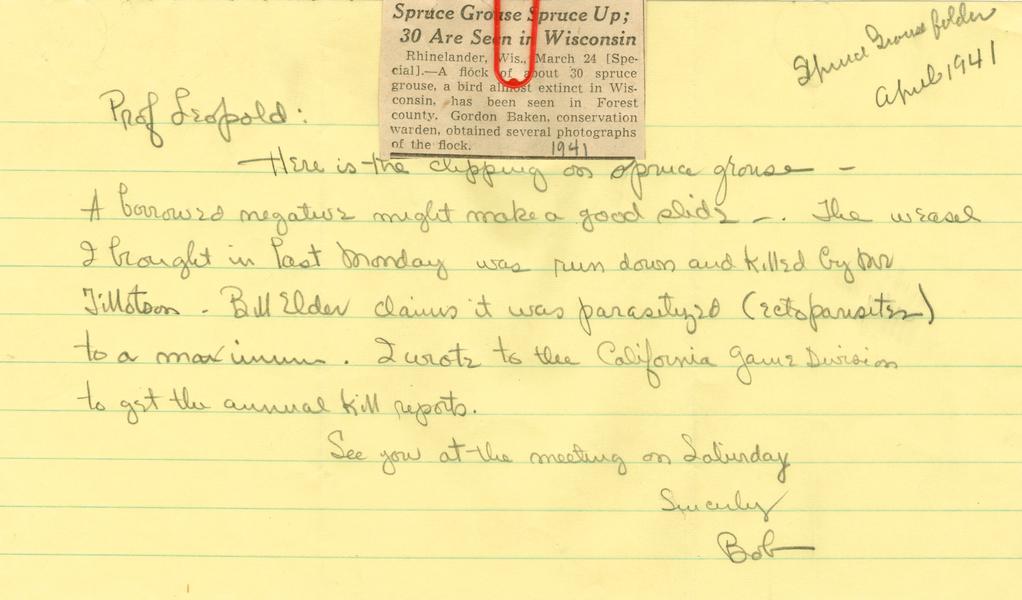 Spruce Grouse Spruce Up;
30 Are Seen in Wisconsin
Rhinelander, Wis., March 24 [Spe-
cial].—A flock of about 30 spruce
grouse, a bird almost extinct in Wis-
consin, has been seen in Forest
county. Gordon Baken, conservation
warden, obtained several photographs
of the flock. 1941
Spruce Grouse folder
April 1941
Prof Leopold:
Here is the clipping on spruce grouse —
A borrowed negative might make a good slide —. The weasel
I brought in last Monday was run down and killed by Mr
Tillotson. Bill Elder claims it was parasityzed (ectoparasites)
to a maximum. I wrote to the California Game Division
to get the annual kill reports.
See you at the meeting on Saturday
Sincerely
Bob